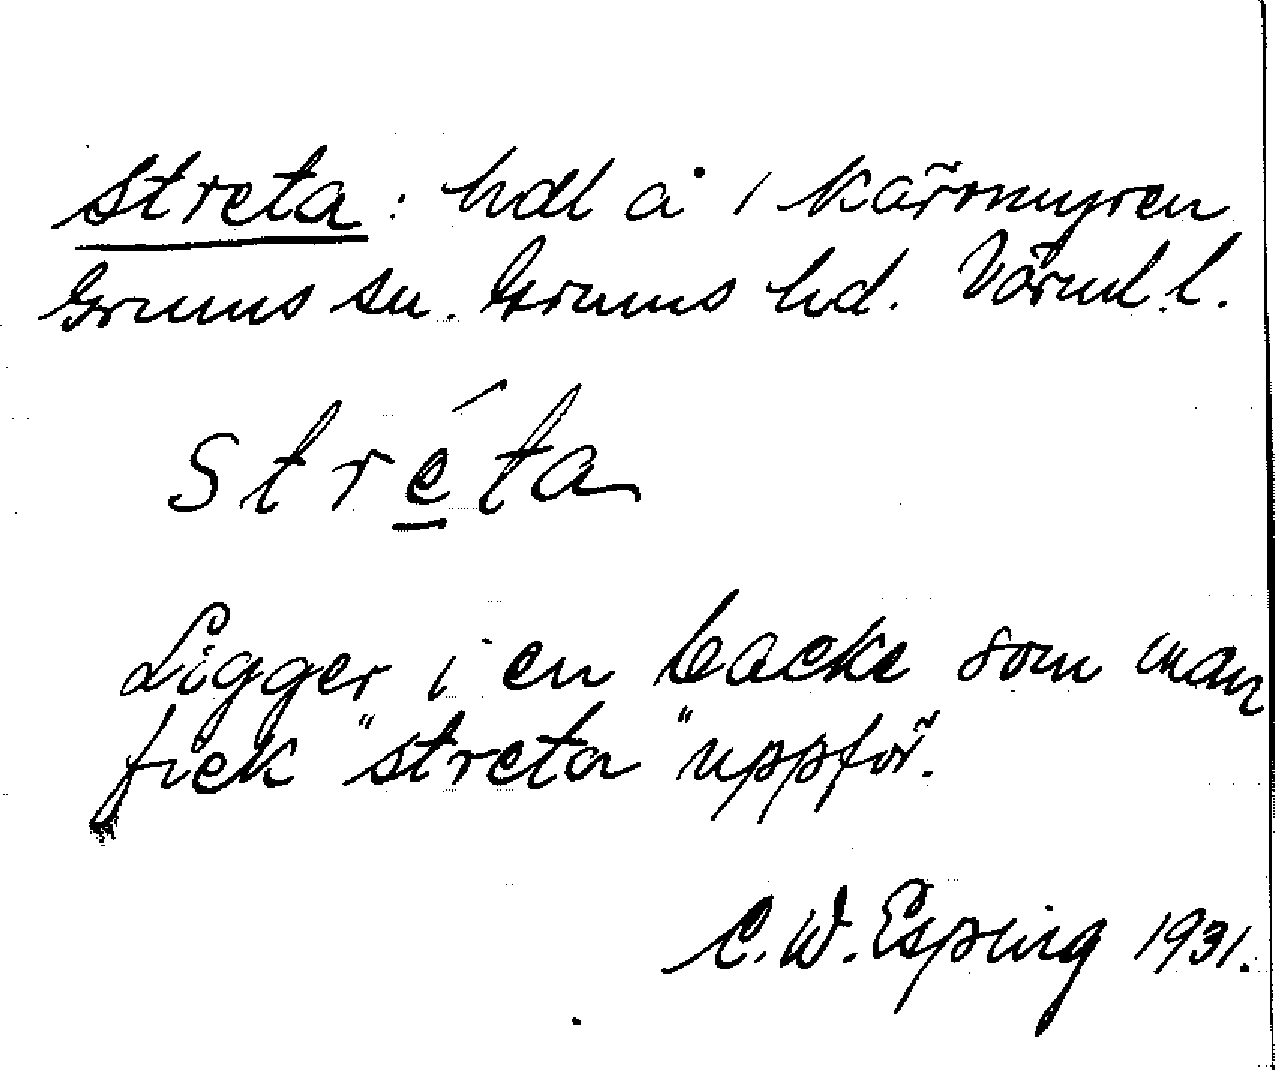 Streta: hdl å i Kärrmyren
Grums sn. Grums hd. Värml. l.
Stréta
Ligger i en backe som man
fick "streta" uppför.
C. W. Esping 1931.